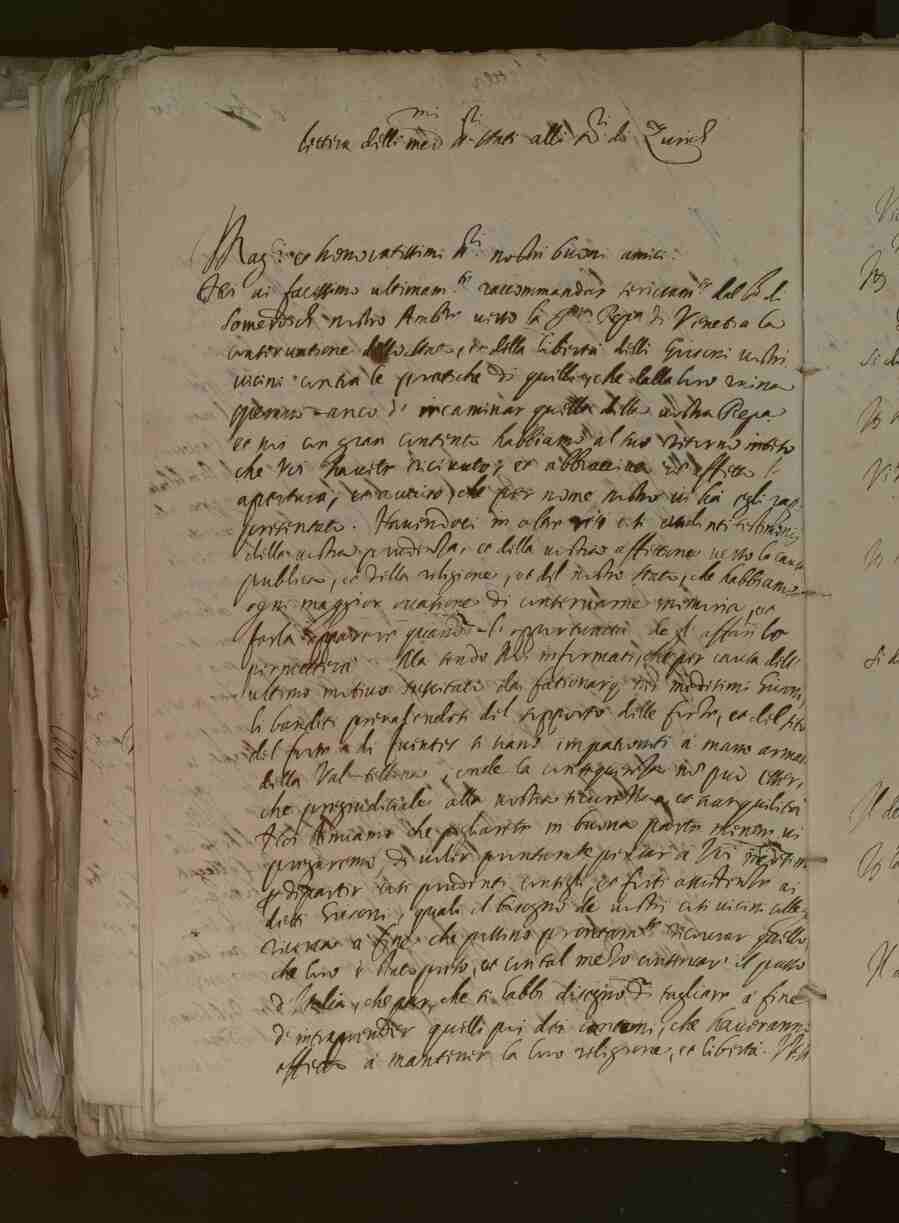 Lettera delli med.mi S.ri Stati alli S.ri di Zurich
Mag.ci et honoratissimi S.ri nostri buoni amici.
Noi vi facessimo ultimam.te raccommandar seriosam.te dal S.r di
Somerdisch nostro Amb.r verso la Ser.ma Rep.ca di Venetia la
conservatione dello stato, et della libertà delli Grisoni vostri
vicini contra le pratiche di quelli, che dalla loro ruina
sperano anco d'incaminar quella della vostra Rep.ca
et noi con gran contento habbiamo al suo ritorno inteso
che Voi havete ricevuto, et abbracciato in effetto le
aperture, et avvisi, che per nome nostro vi ha egli rap-
presentato. Havendoci in oltre dati evidenti testimonij
della vostra prudentia, et della vostra affettione verso la causa
publica, et della religione, et del nostro stato, che habbiamo
ogni maggior occasione di conservarne memoria, et
farla apparere quando l'opportunità de gl'affari lo
permetterà. Ma sendo Noi informati, che per causa dell'
ultimo motivo suscitato da fationarij nei medesimi Grisoni,
li banditi prevalendosi del supporto delle forze, et del sito
del forte di Fuentes si siano impatroniti a mano armata
della Val-tellina, onde la consequenza non può esser,
che pregiudiciale alla vostra sicurezza, et tranquilità
Noi stimiamo che pigliarete in buona parte mentre vi
pregaremo di voler prontamente pensar a Voi medesimi
et dipartir tali prudenti consigli, et forti assistenze ai
detti Grisoni, quali il bisogno de vostri
ricerca a fine che possino prontam.te ricovrar quello
che loro è stato preso, et con tal mezo conservar il passo
d'Italia, che par, che si habbi disegno di tagliare a fine
d'intraprender quelli poi dei cantoni, che haveranno
affetto a mantener la loro religione, et libertà.